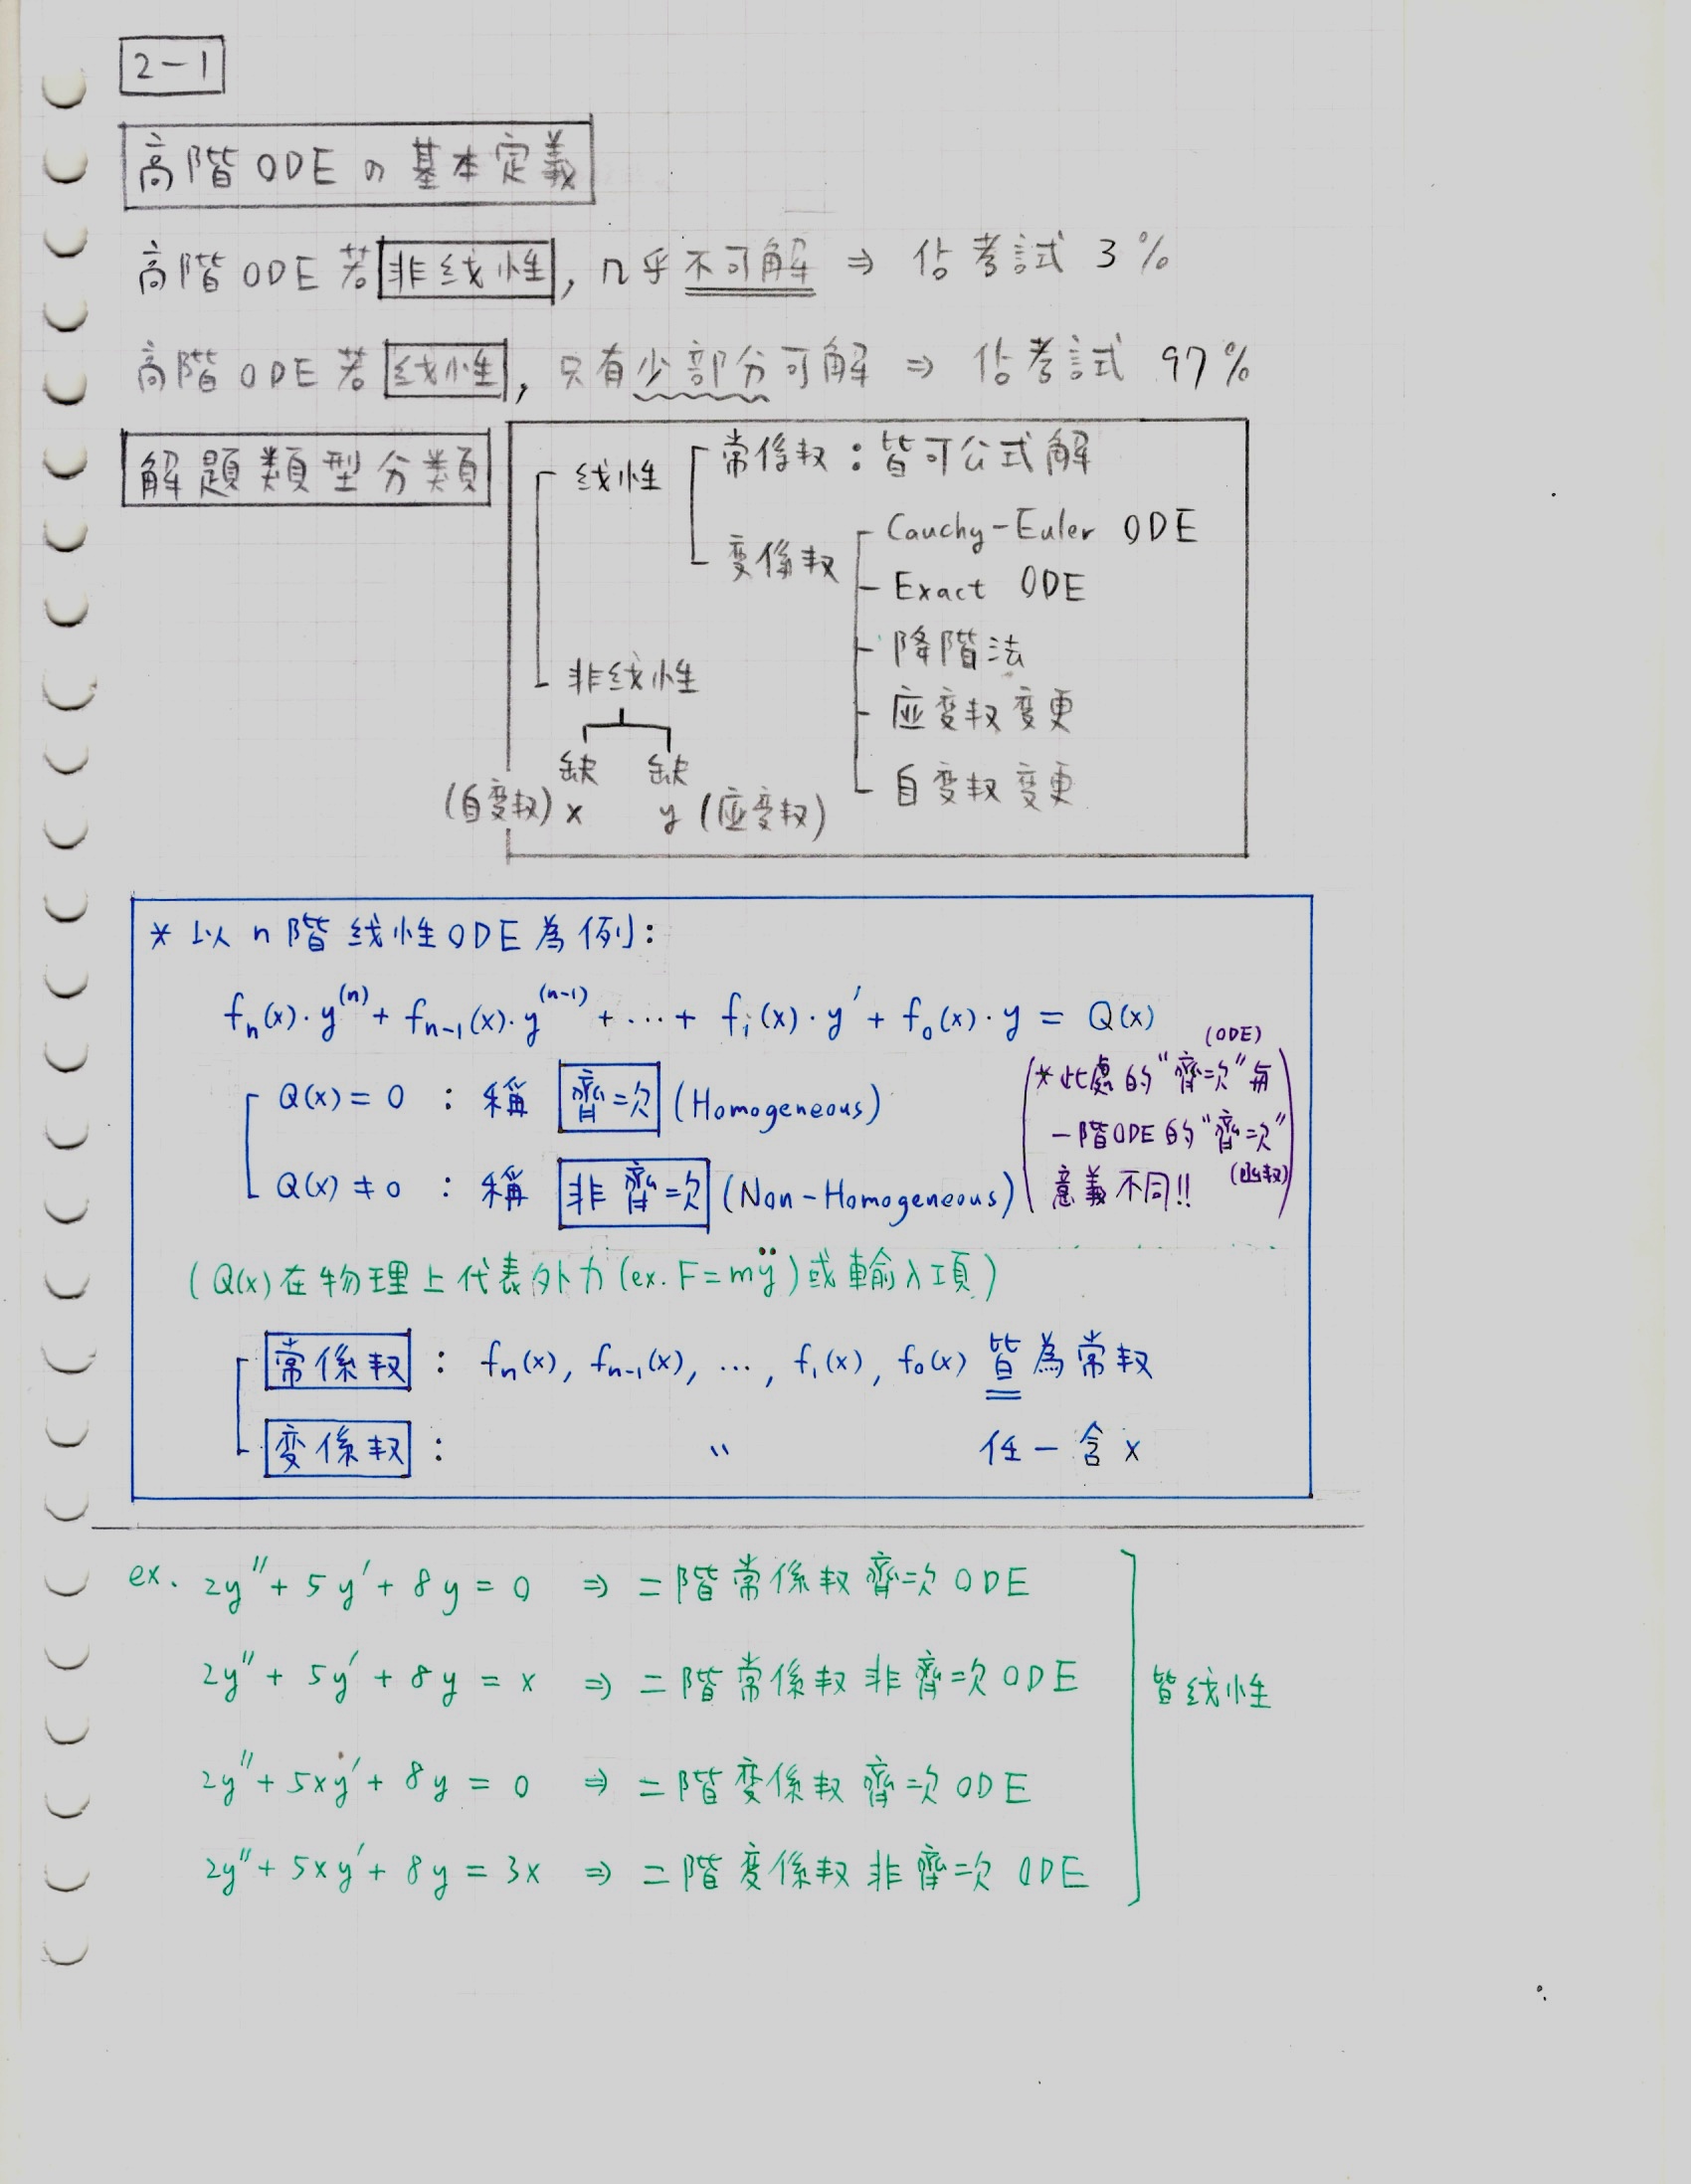 2-1
高階ODEの基本定義
高階ODE若非线性,几乎不可解 ⇒ 佔考試 3%
高階ODE若线性,只有少部分可解 ⇒ 佔考試 97%
解題類型分類
线性
常係数：皆可公式解
变係数
Cauchy-Euler ODE
Exact ODE
降階法
应变数变更
自变数变更
非线性
缺 缺
(自变数) x y (应变数)
* 以n階线性ODE為例:
fn(x)·y^(n) + fn-1(x)·y^(n-1) + ... + f1(x)·y' + f0(x)·y = Q(x)
Q(x) = 0 : 稱 齊次 (Homogeneous)
Q(x) ≠ 0 : 稱 非齊次 (Non-Homogeneous)
(ODE)
(*此處的"齊次"與
一階ODE的"齊次"
(函数)
意義不同!!)
(Q(x)在物理上代表外力(ex. F=mÿ)或輸入項)
常係数 : fn(x), fn-1(x), ..., f1(x), f0(x) 皆為常数
变係数 : " 任一含x
ex. 2y''+5y'+8y=0 ⇒ 二階常係数齊次ODE
2y''+5y'+8y=x ⇒ 二階常係数非齊次ODE
皆线性
2y''+5xy'+8y=0 ⇒ 二階变係数齊次ODE
2y''+5xy'+8y=3x ⇒ 二階变係数非齊次ODE